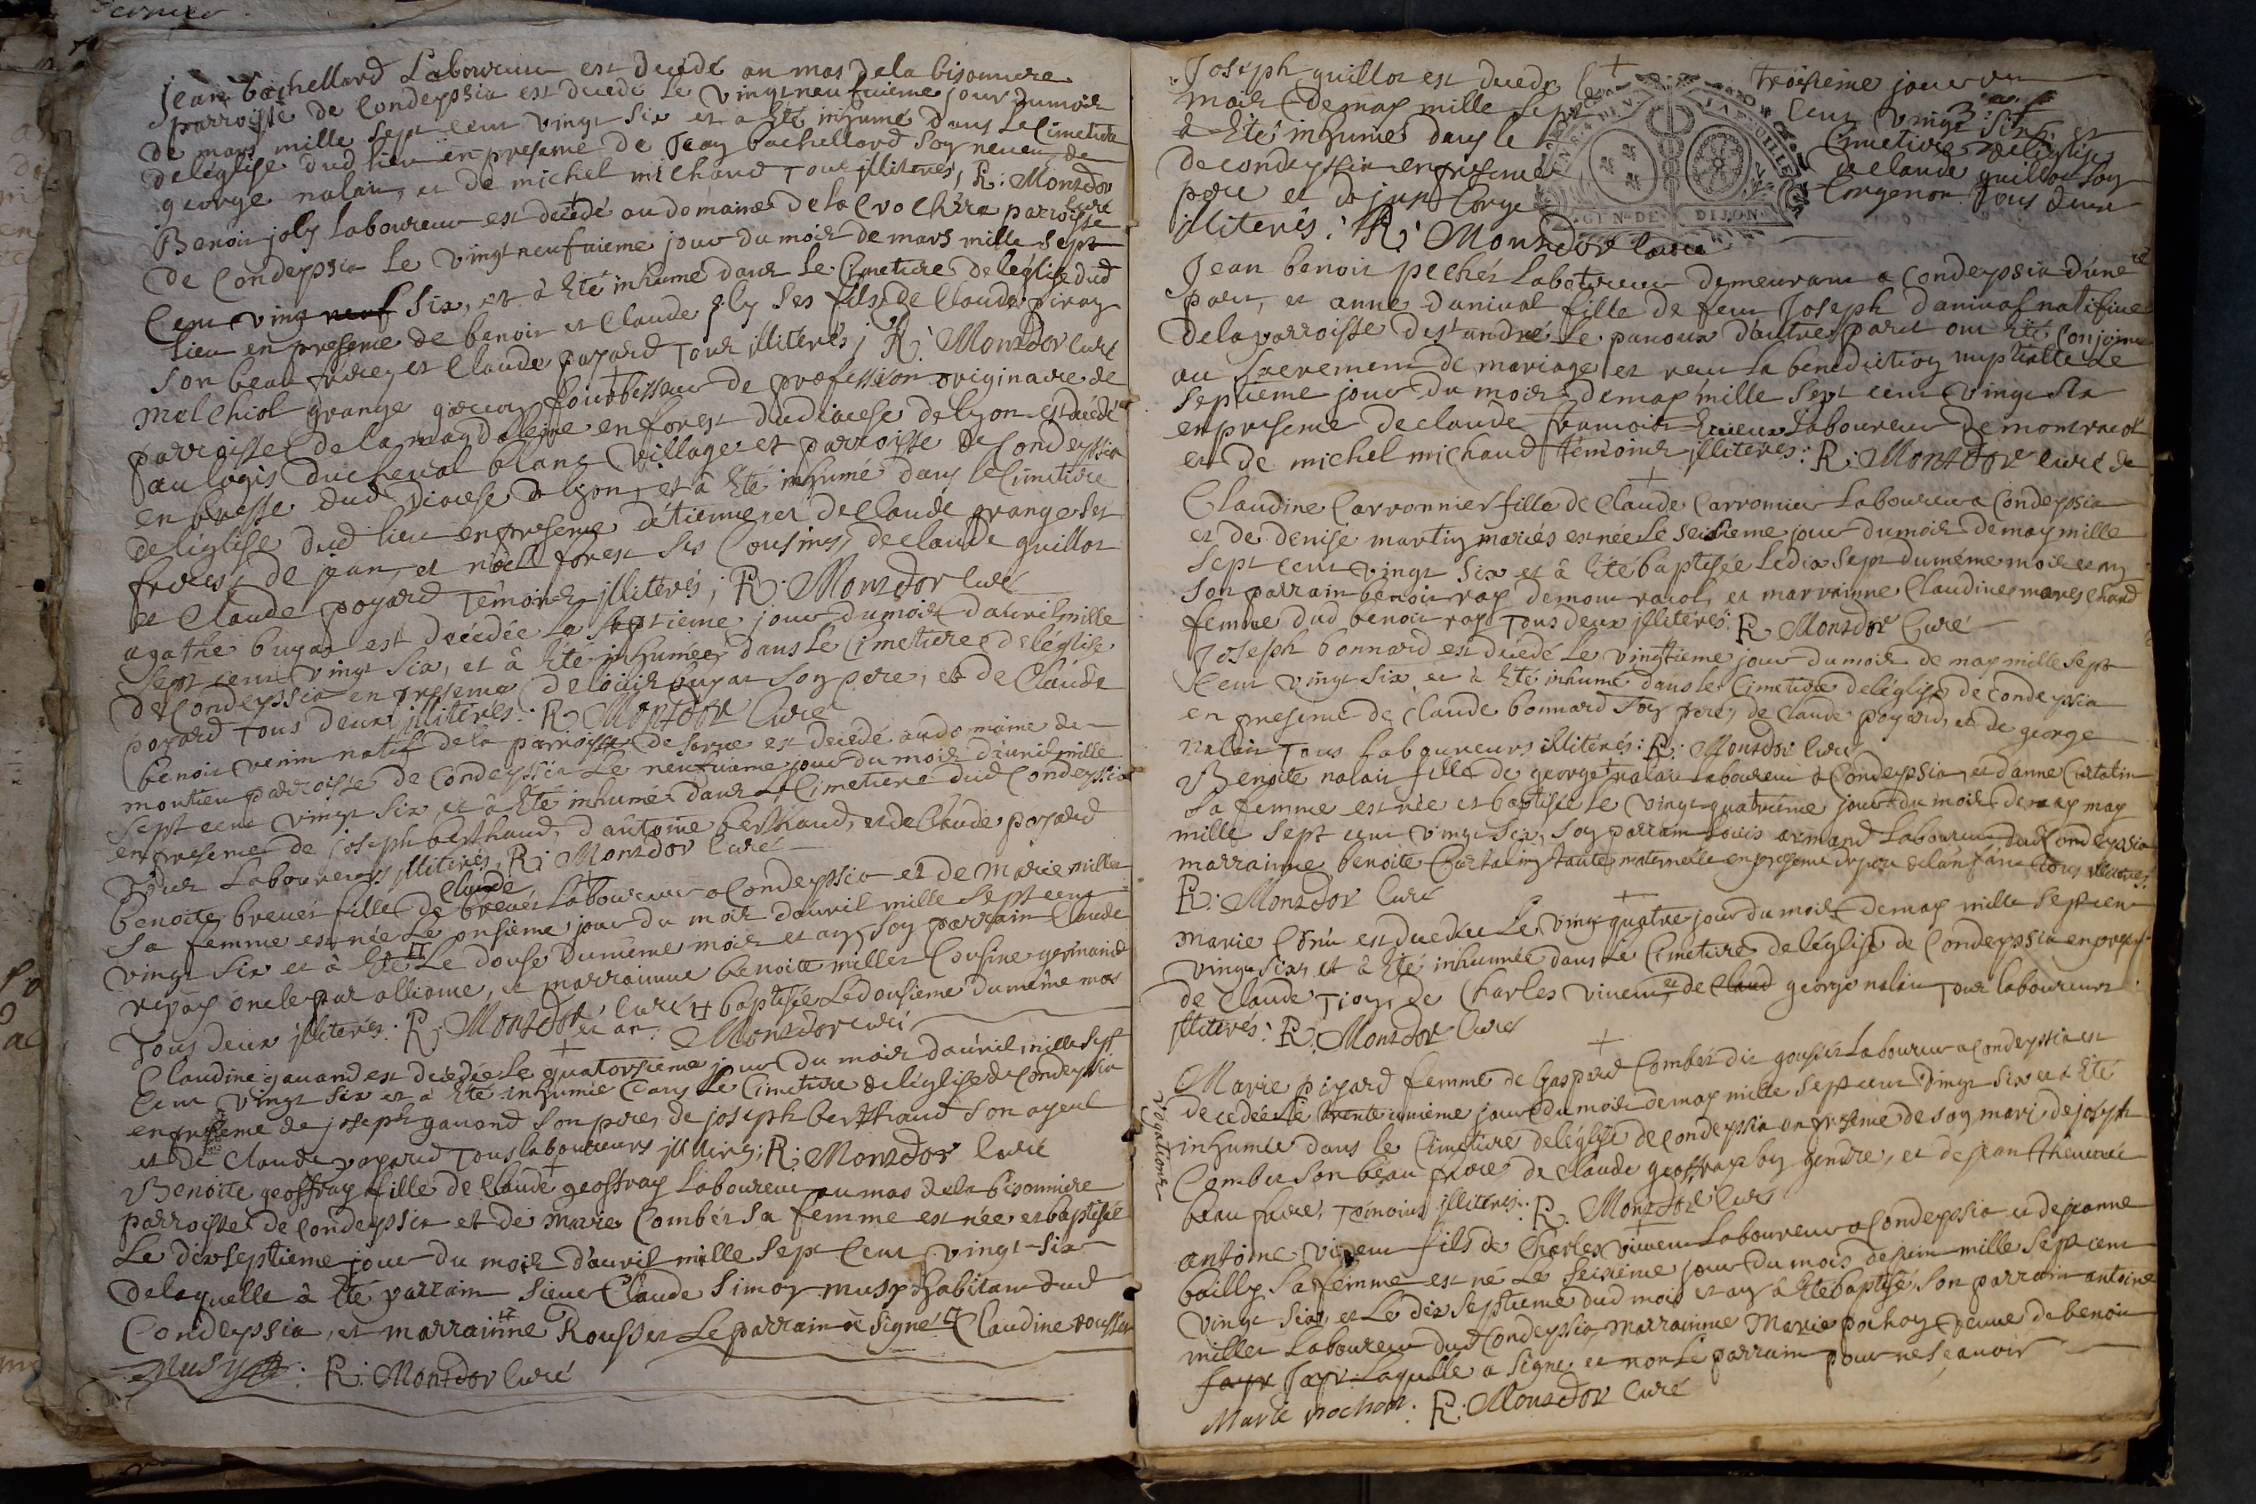 Jean bachellard Laboureur est decédé au mas de la bisonniere
parroisse de Condeyssia est decedé le vingt neufuieme jour du mois
de mars mille sept cent vingt six et a été inhumé dans le Cimetiere
de léglise dud lieu en presence de Jean bachellard son neveu de
george nalain, et de michel michaud tous illiterés, R: Montdor
curé
Benoit joly laboureur est decédé au domaine de la Crochére parroisse
de Condeyssia le vingt neufuieme jour du mois de mars mille sept
Cent vingt neuf six, et à été inhumé dans le Cimetiere de léglise dud
lieu en presence de benoit et Claude joly ses fils, de Claude piray
son beau frere, et Claude poyard tous illiterés; R: Montdor curé
melchiol grange garcon fourbisseur de profession originaire de
parroisse de la magdaleine en forest du diocese de lyon est decédé
au logis du cheval blanc village et parroisse de Condeyssia
en bresse dud diocese de lyon, et à été inhumé dans le Cimetiere
de léglise dud lieu en presence d'étienne, et de Claude grange ses
freres, de jean, et noël forest ses Cousins, de Claude guillot
et Claude poyard témoins illiterés; R: Montdor Curé
agathe buyat est decédée le septieme jour du mois d'auril mille
sept cent vingt six, et à été inhumée dans le Cimetiere de léglise
de Condeyssia en presence de loüis buyat son pere, et de Claude
poyard tous deux illiterés: R: Montdor Curé
benoit natif de la parroisse de est decédé au domaine de
montieu parroisse de Condeyssia le neufuieme jour du mois d'auril mille
sept cent vingt six, et à été inhumé dans le Cimetiere dud Condeyssia
en presence de joseph berthaud, d'antoine berthaud, et de Claude poyard
tous Laboureurs illiterés, R: Montdor Curé
Claude
benoite breuét fille de breuét Laboureur a Condeyssia et de marie millet
sa femme est née le onsieme jour du mois d'auril mille sept cent
vingt six et à été Le douse du méme mois et an, son parrain Claude
oncle par alliance, et marrainne benoite millet Cousine germaine
tous deux illiterés: R: Montdor Curé baptisée Le dousieme du même mois
et an: Montdor curé
Claudine gauand est decédée le quatorsieme jour du mois d'auril mille sept
cent vingt six et a été inhumée dans le Cimetiere de léglise de Condeyssia
en presence de joseph gauand son pere, de joseph berthaud son ayeul
et de Claude poyard tous laboureurs illiterés; R: Montdor Curé
Benoite geoffray fille de Claude geoffray Laboureur au mas de la bisonniere
parroisse de Condeyssia et de marie Combét sa femme est née et baptisée
le dixseptieme jour du mois d'auril mille sept Cent vingt-six
de laquelle à été parrain sieur Claude Simon musy habitant dud
Condeyssia, et marrainne Rousset Le parrain a signé Claudine rousset
Musy: R: Montdor Curé
Joseph guillot est decedé le troisieme jour du
mois de may mille sept cent vingt six, et
à été inhumé dans le Cimetiere de léglise
de condeyssia en presence de Claude guillot son
pere et de jean Corge Corgenon tous deux
illiterés: R: Montdor Curé
GEN. DE DIJON
Jean benoit pechét Laboureur demeurant a Condeyssia d'une
part, et anne daniual fille de feu Joseph daniual natifue
de la parroisse de st andré le panoux d'autre part ont été Conjoins
au Sacrement de mariage, et reçu la benediction nuptialle le
septieme jour du mois de may mille sept cent vingt six
en presence de claude francois Laboureur de montracol
et de michel michaud témoins illiterés: R: Montdor curé
Claudine Carronnier fille de Claude Carronnier Laboureur a Condeyssia
et de denise martin mariés est née le seisieme jour du mois de may mille
sept cent vingt six et à été baptisée le dix sept du méme mois et an
son parrain benoit ray de montracol, et marrainne Claudine mareschand
femme dud benoit ray tous deux illiterés: R: Montdor Curé
Joseph bonnard est decédé le vingtieme jour du mois de may mille sept
cent vingt six, et à été inhumé dans le Cimetiere de léglise de Condeyssia
en presence de Claude bonnard son frere, de Claude poyard, et de george
nalain tous laboureurs illiterés: R: Montdor Curé
Benoite nalain fille de george nalain Laboureur à Condeyssia, et d'anne Curtalin
sa femme est née et baptisée le vingt quatrieme jour du mois de may may
mille sept cent vingt six, son parrain loüis armand Laboureur dud Condeyssia
marrainne benoite Curtalin tante maternelle en presence du pere de lanfant tous illiterés
R: Montdor Curé
marie est decedée le vingt quatre jour du mois de may mille sept cent
vingt six, et à été inhumée dans le Cimetiere de léglise de Condeyssia en presence
de Claude tion, de Charles viuent et de Claud george nalain tous laboureurs
illiterés: R: Montdor Curé
Marie piyard femme de Gaspard Combét dit goussét Laboureur a Condeyssia est
decedée le trente unieme jour du mois de may mille sept cent vingt six et à été
inhumée dans le Cimetiere de léglise de Condeyssia en presence de son mari, de joseph
Combet son beau frere, de Claude geoffray son gendre, et de jean theuenét
beau frere, témoins illiterés: R: Montdor Curé
rogations
antoine viuent fils de Charles viuent Laboureur a Condeyssia et de jeanne
bailly sa femme est né le seisieme jour du mois de juin mille sept cent
vingt six, et le dix septieme dud mois et an à été baptisé, son parrain antoine
millet laboureur dud Condeyssia, marrainne Marie pochon veuue de benoit
fayr Jayr Laquelle a signé et non le parrain pour ne sçauoir
Marie pochon: R: Montdor Curé